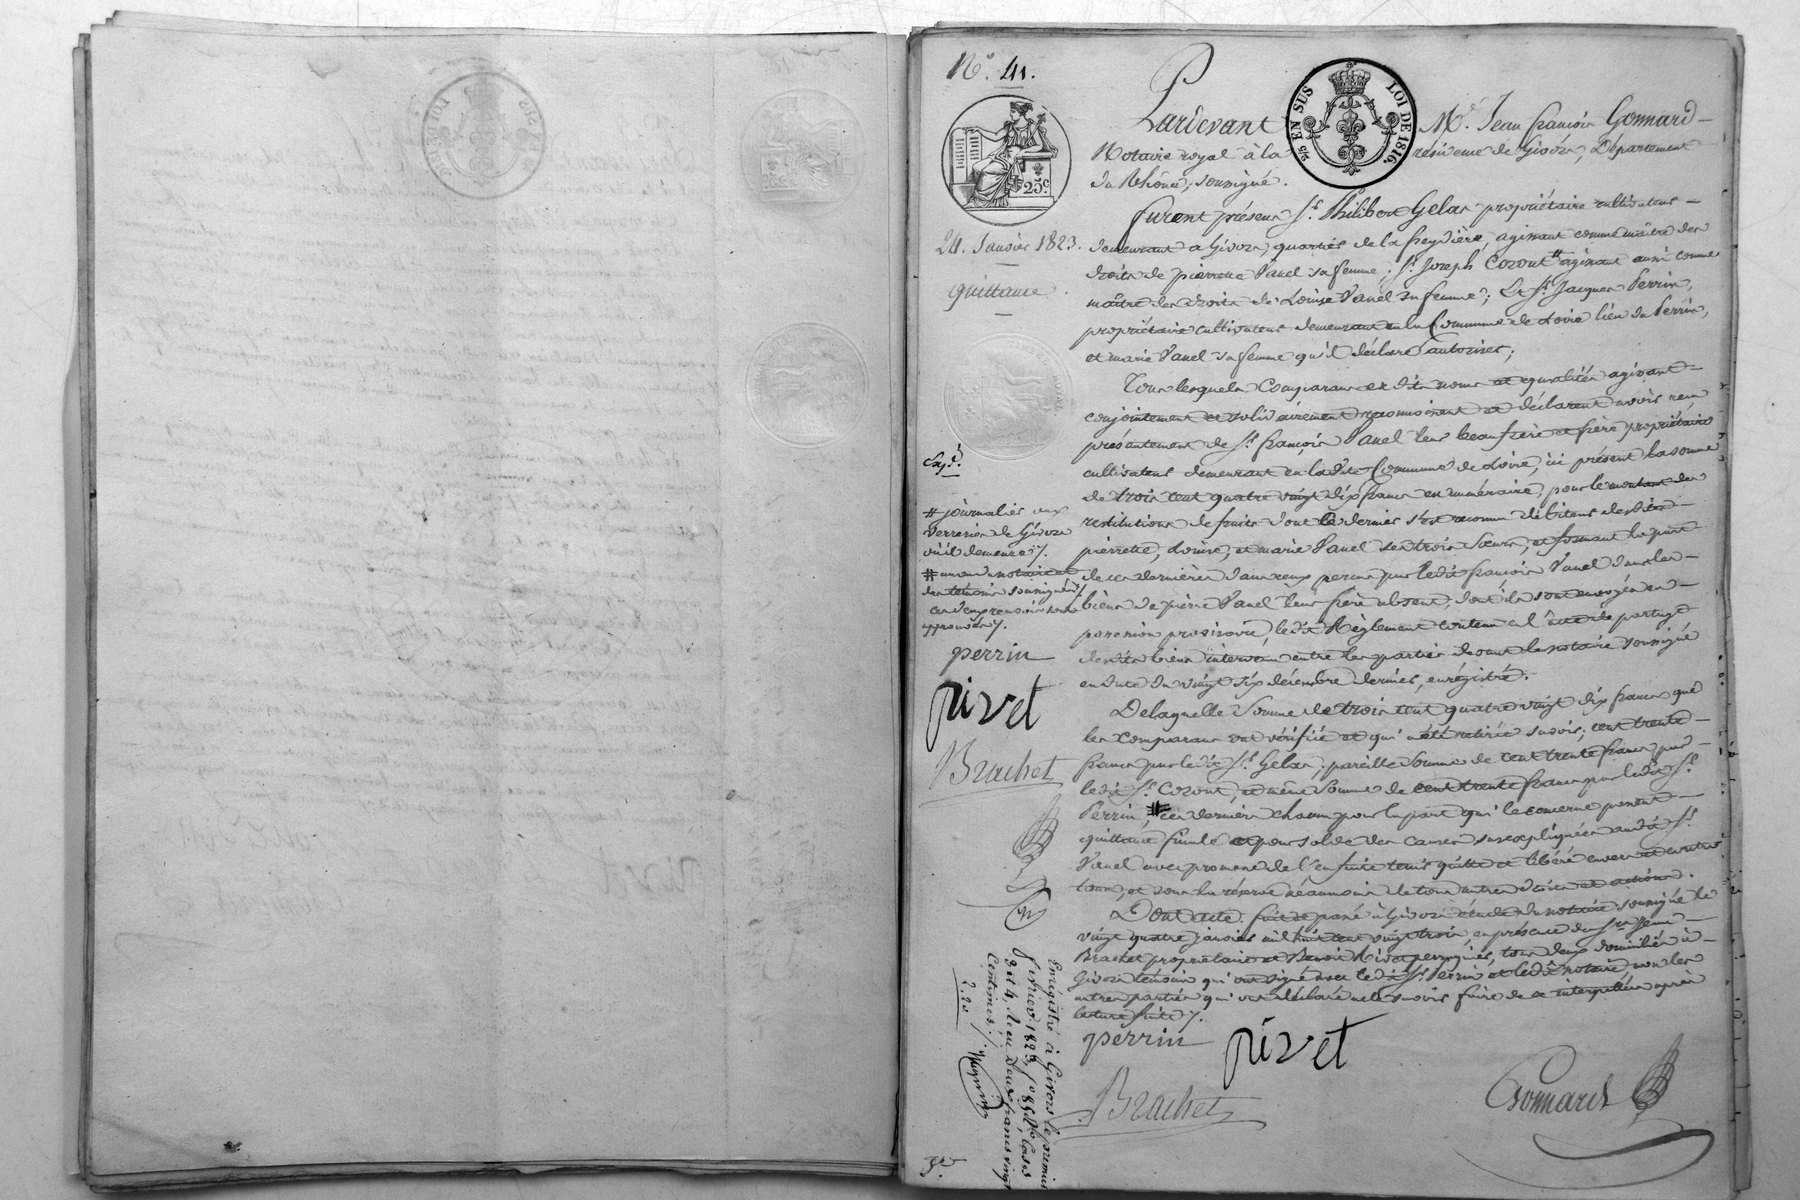 N.° 41.
25 EN SUS LOI DE 1816.
25.c
24. Janvier 1823.
quittance
Pardevant M.e Jean françois Gonnard
Notaire royal à la résidence de Givors, Département
du Rhône, soussigné.
furent présens S.r Philibert Gelas propriétaire cultivateur
demeurant à Givors, quartier de la freydière, agissant comme maître des
droits de pierrette Vanel sa femme; S.r Joseph Cozout # agissant aussi comme
maître des droits de Louise Vanel sa femme; Et S.r Jacques Perrin,
propriétaire cultivateur demeurant en la Commune de Loire lieu du Perrin,
et marie Vanel sa femme qu'il déclare autoriser;
Tous lesquels Comparans ex dits noms et qualités agissant
conjointement et solidairement reconnoissent et déclarent avoir reçu
présentement de S.r françois Vanel leur beaufrère et frère propriétaire
cultivateur demeurant en ladite Commune de Loire, ici présent la somme
de trois cent quatre vingt dix francs en numéraire, pour le montant des
restitutions de fruits dont ce dernier s'est reconnu débiteur desdites
pierrette, Louise, et marie Vanel ses trois sœurs, et formant la part
de ces dernières dans ceux perçus par ledit françois Vanel dans les
biens de pierre Vanel leur frère absent, dont ils sont envoyés en
possession provisoire, ledit Règlement contenu en l'acte de partage
desdits biens intervenu entre les parties devant le notaire soussigné
en date du vingt six décembre dernier, enregistré.
De laquelle Somme de trois cent quatre vingt dix francs que
les comparans ont vérifiée et qui a été retirée savoir; cent trente
francs par ledit S.r Gelas; pareille Somme de cent trente francs par
ledit S.r Cozout, et même Somme de cent trente francs par ledit S.r
Perrin, # ces derniers chacun pour la part qui le concerne passent
quittance finale et pour solde des causes susexpliquées audit S.r
Vanel avec promesse de l'en faire tenir quitte et libéré envers et contre
tous, et sous la réserve néanmoins de tous autres droits et actions.
Dont acte. fait et passé à Givors étude du notaire soussigné le
vingt quatre janvier mil huit cent vingt trois, en présence de S.rs
Brachet propriétaire et Benoit Rivet perruquier, tous deux domiciliés à
Givors témoins qui ont signé avec ledit S.r Perrin et ledit notaire, non les
autres parties qui ont déclaré ne le savoir faire de ce interpellées après
lecture faite ⁊.
perrin
rivet
Brachet
Gonnard
Exp.é
# journalier aux
verreries de Givors
où il demeure ⁊.
des témoins soussignés
approuvés ⁊.
perrin
rivet
Brachet
Enregistré à Givors le premier
février 1823, f.° 85 v.°, cases
3 et 4, Reçu Deux francs vingt
Centimes ⁊.
2.20